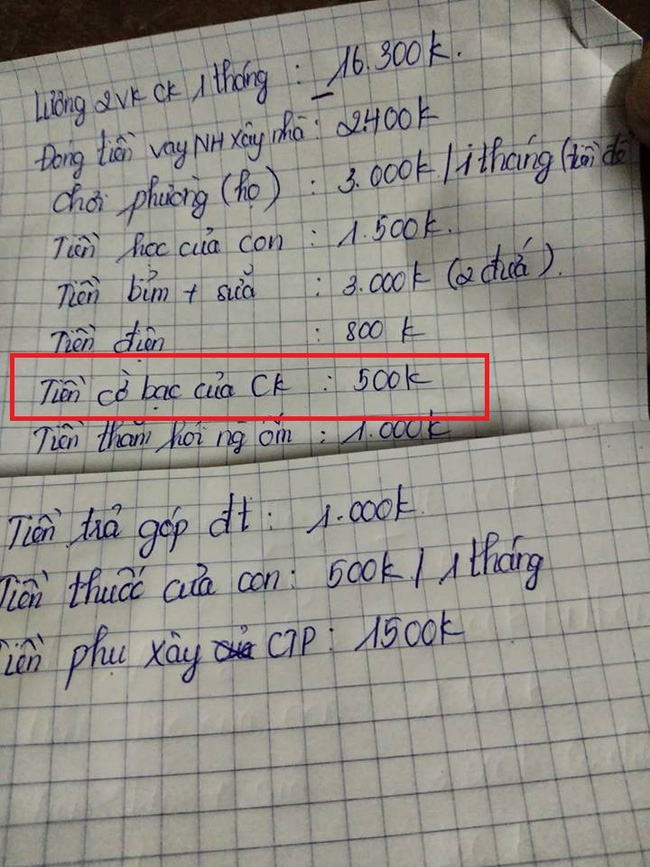 Lương 2VK CK 1 tháng : 16.300k.
Đong tiền vay NH xây nhà : 2.400k
chơi phường (họ) : 3.000k / 1 tháng (tiền để
Tiền học của con : 1.500k.
Tiền bỉm + sửa : 3.000k (2 đứa).
Tiền điện : 800 k
Tiền cờ bạc của Ck : 500k
Tiền thăm hỏi ng ốm : 1.000k
Tiền trả góp đt : 1.000k
Tiền thuốc của con : 500k / 1 tháng
Tiền phụ xây của CTP : 1500k